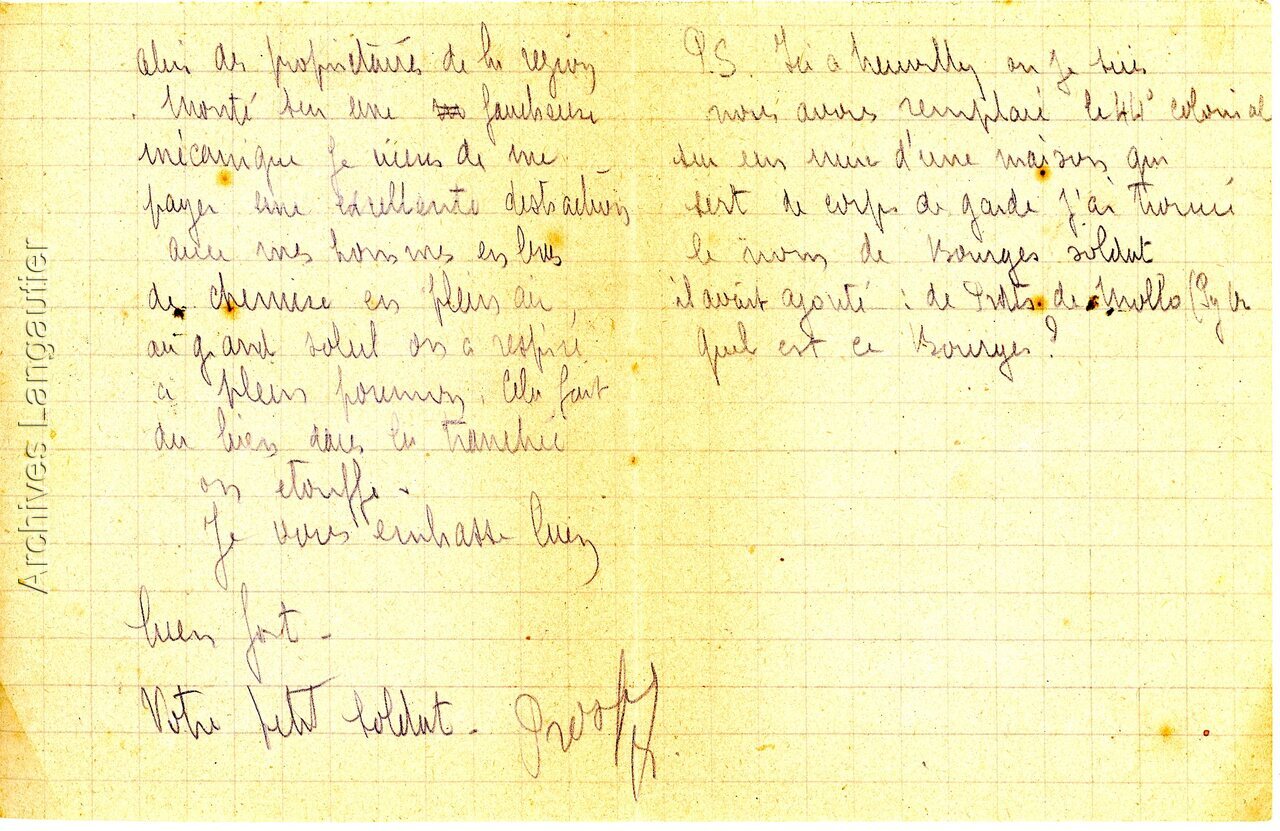 des propriétaires de la région
Monté sur une faucheuse
mécanique je viens de me
payer une excellente distraction
avec mes hommes en bras
de chemise en plein air,
au grand soleil on a respiré
à pleins poumons. Cela fait
du bien dans la tranchée
on etouffe.
Je vous embrasse bien
bien fort -
Votre petit soldat -
P.S. Ici a où je suis
nous avons remplacé le 44e colonial
sur un mur d'une maison qui
sert de corps de garde j'ai trouvé
le nom de Bourges soldat
il avait ajouté : de Prats de Mollo
Quel est ce Bourges ?
Archives Langautier